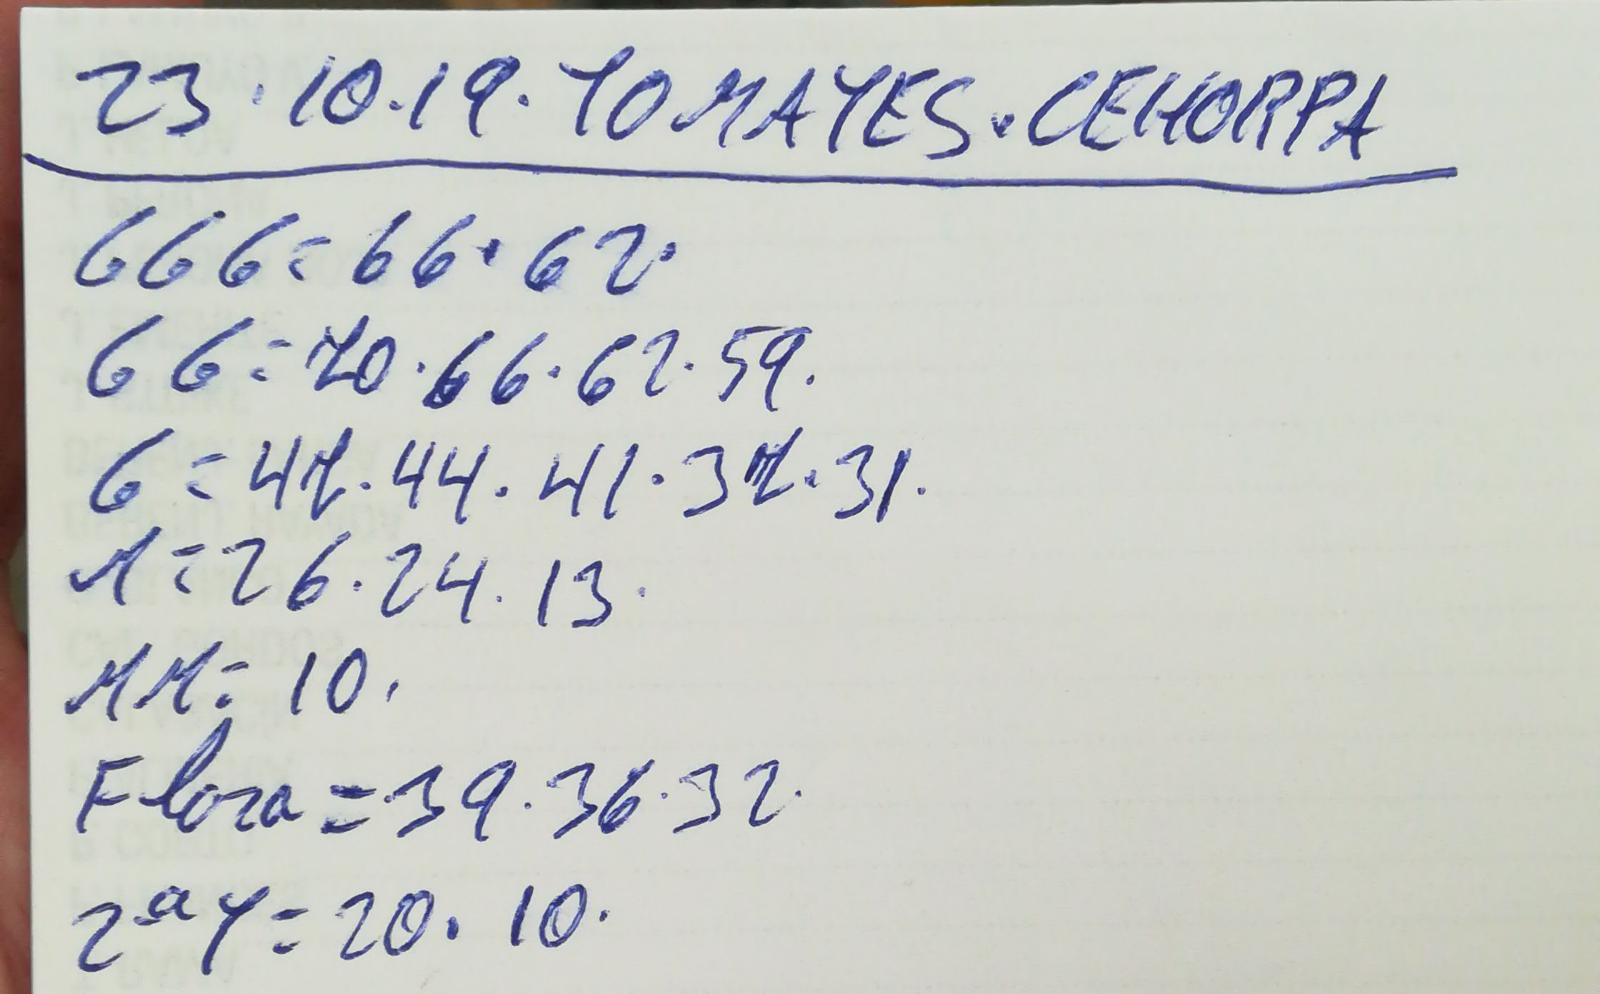 23.10.19. TOMAYES. CEHORPA
GGG = 66. 62.
GG = 70. 66. 62. 59.
G = 47. 44. 41. 37. 31.
M = 26. 24. 13.
MM = 10.
Flora = 39. 36. 32.
2ª Y = 20. 10.